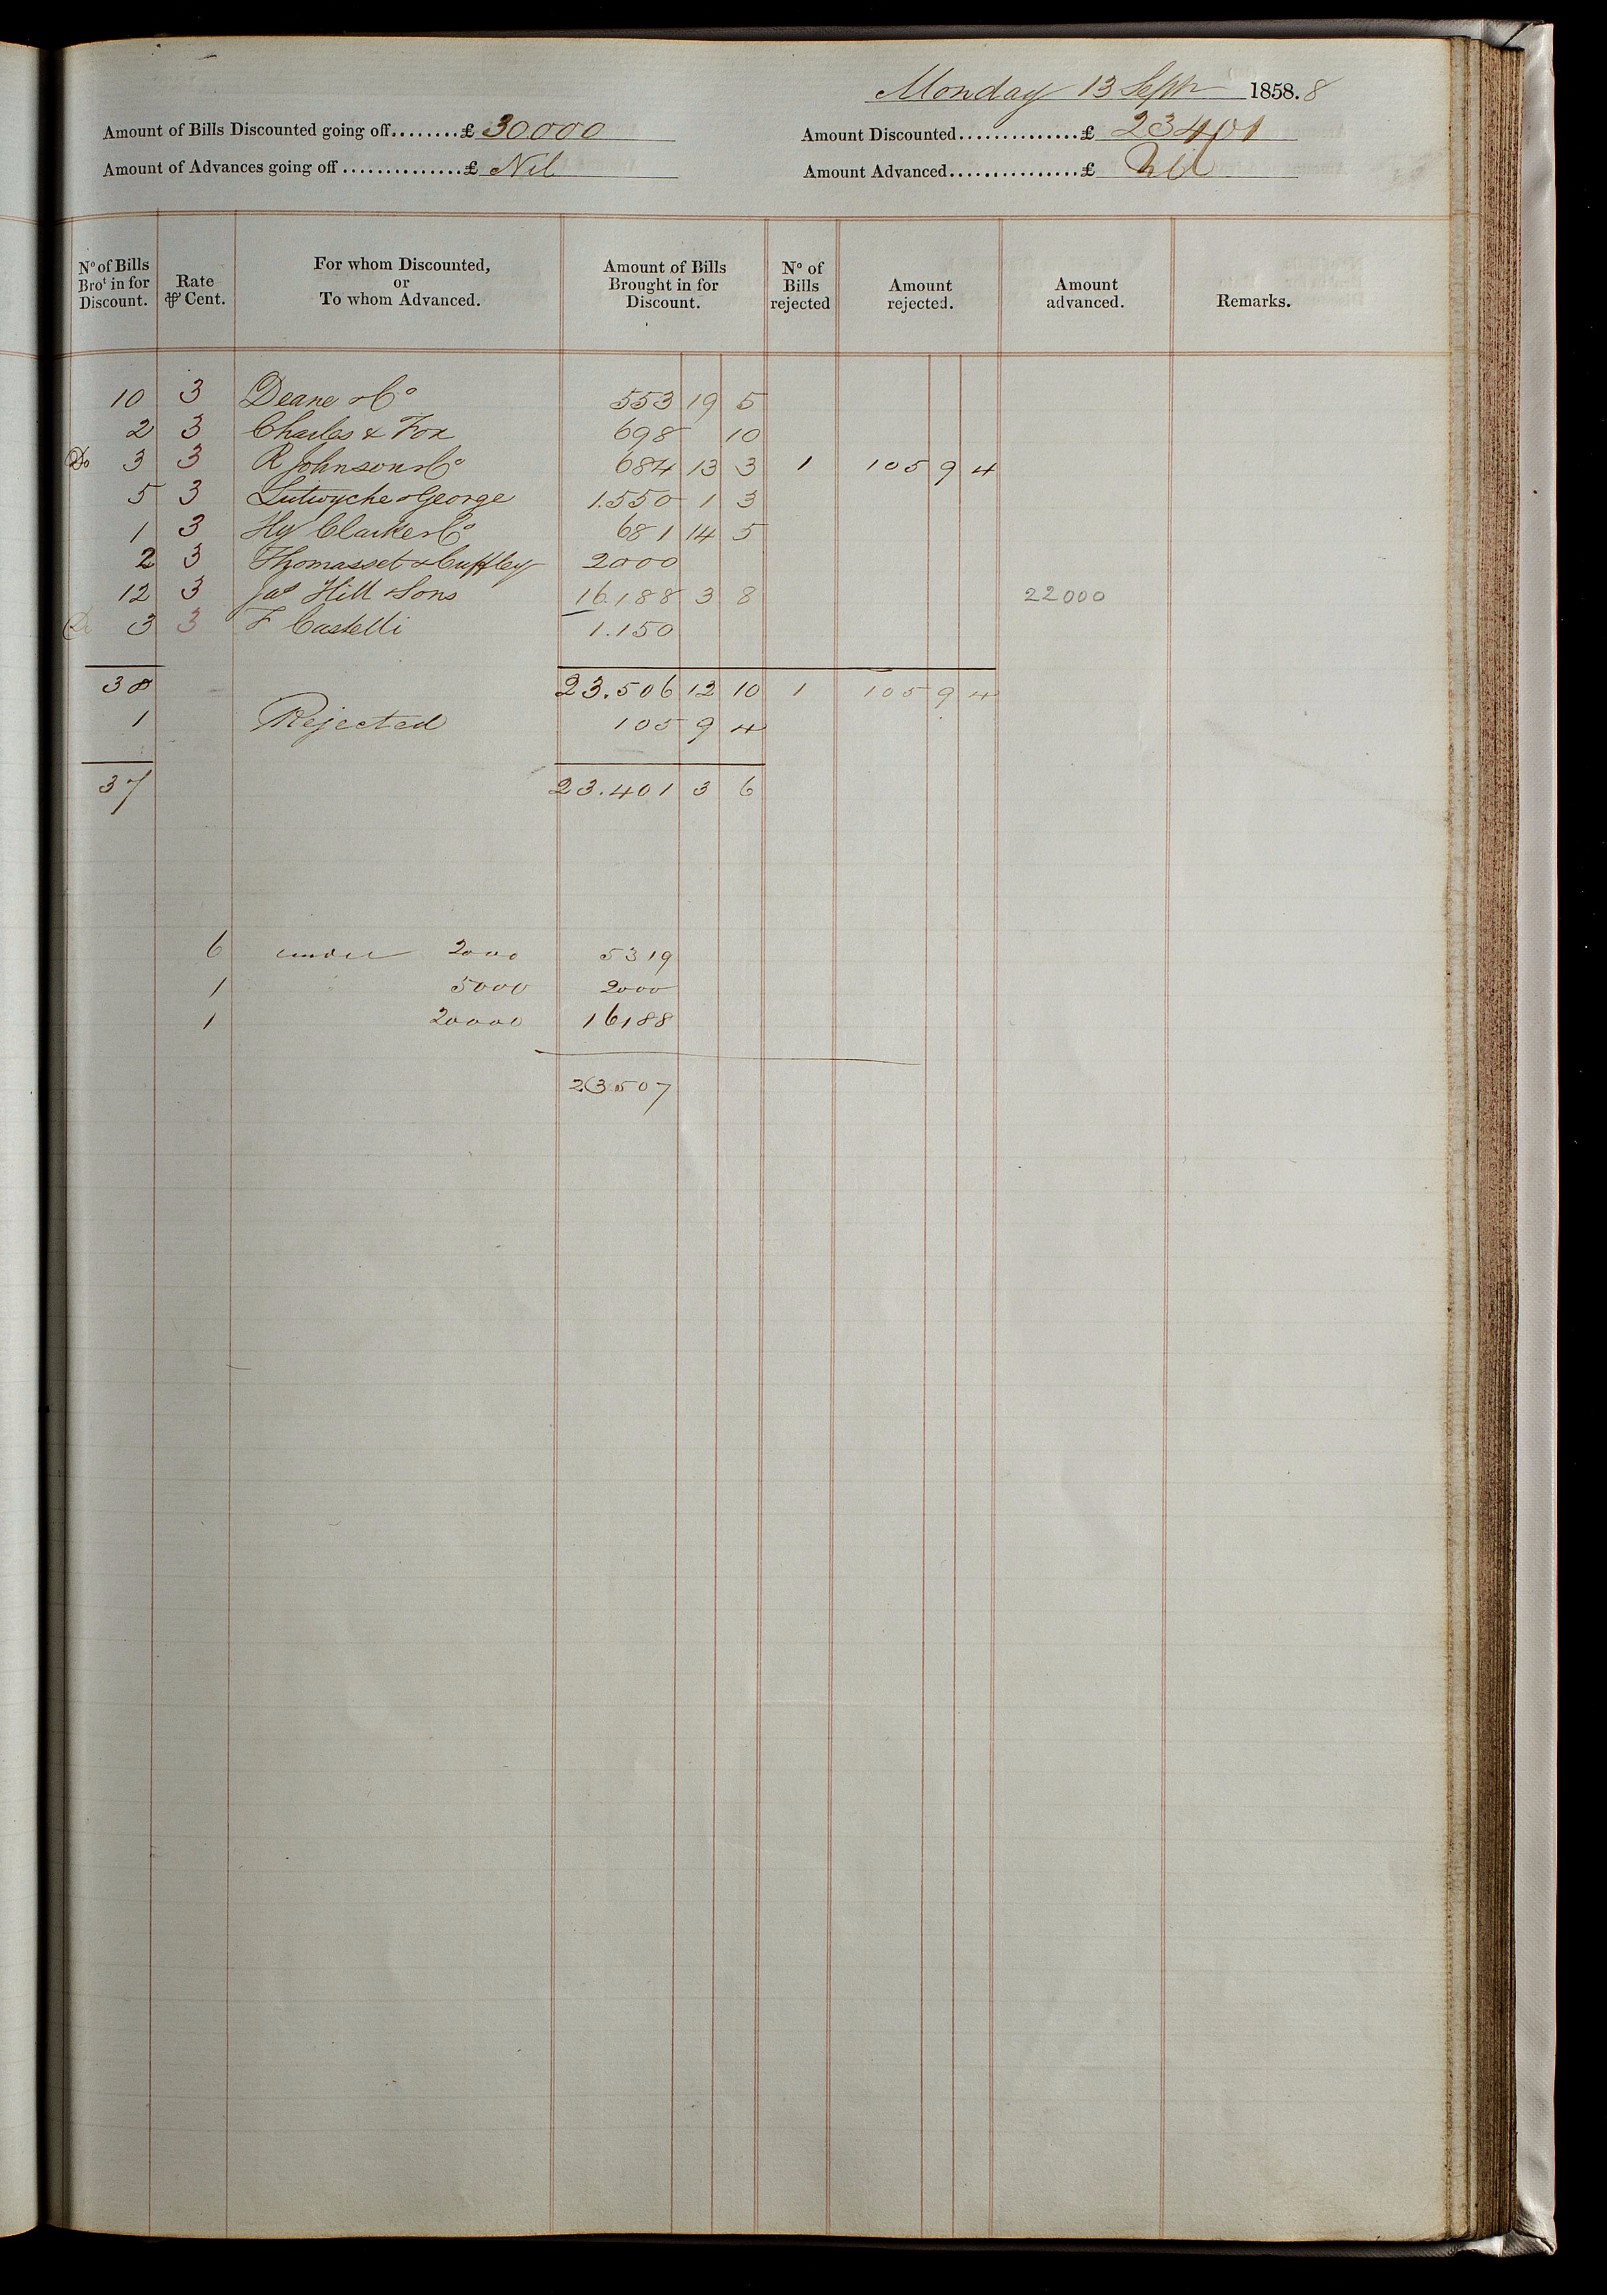 Monday 13 Sepr 1858. 8
Amount of Bills Discounted going off........£ 30.000 Amount Discounted..............£ 23401
Amount of Advances going off..............£ Nil Amount Advanced...............£ Nil
No of Bills Brot in for Discount. Rate ⅌ Cent. For whom Discounted, or To whom Advanced. Amount of Bills Brought in for Discount. No of Bills rejected Amount rejected. Amount advanced. Remarks.
10 3 Deane & Co 553 19 5
2 3 Charles & Fox 698 10
Do 3 3 R Johnson & Co 684 13 3 1 105 9 4
5 3 Lutwyche & George 1.550 1 3
1 3 Hy Clarke & Co 681 14 5
2 3 Thomasset & Cuffley 2000
12 3 Jas Hill & Sons 16.188 3 8 22000
3 3 F Castelli 1.150
38 23.506 12 10 1 105 9 4
1 Rejected 105 9 4
37 23.401 3 6
6 under 2000 5319
1 5000 2000
1 20000 16188
23507